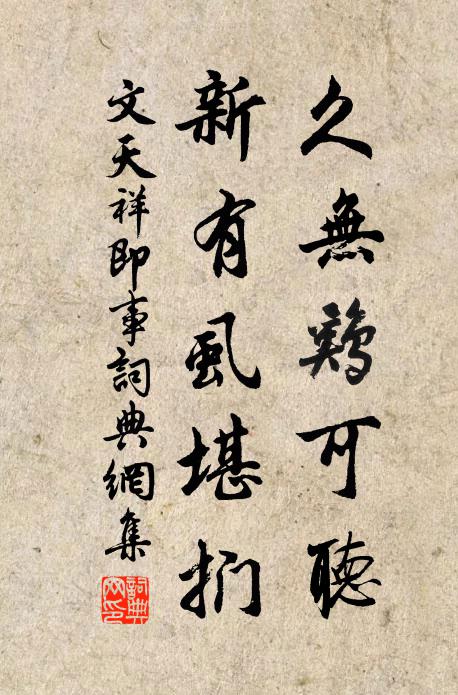 久無鷄可聽
新有虱堪捫
文天祥即事詞典網集
詞典网印